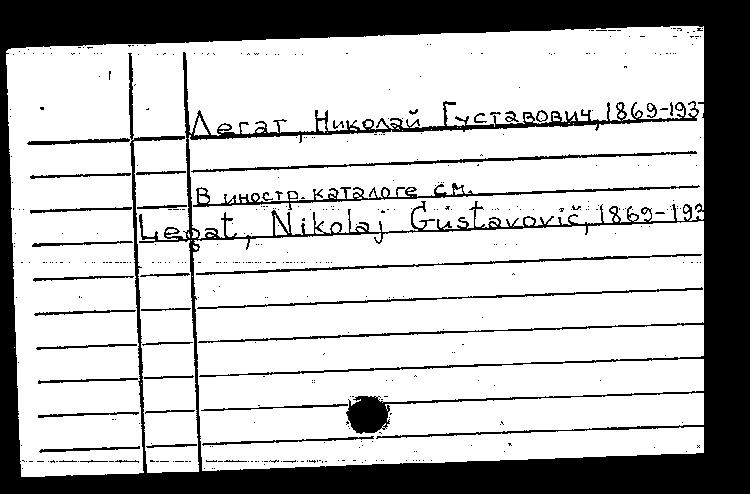 Легат, Николай Густавович, 1869-1937
В иностр. каталоге см.
Legat, Nikolaj Gustavovič, 1869-193